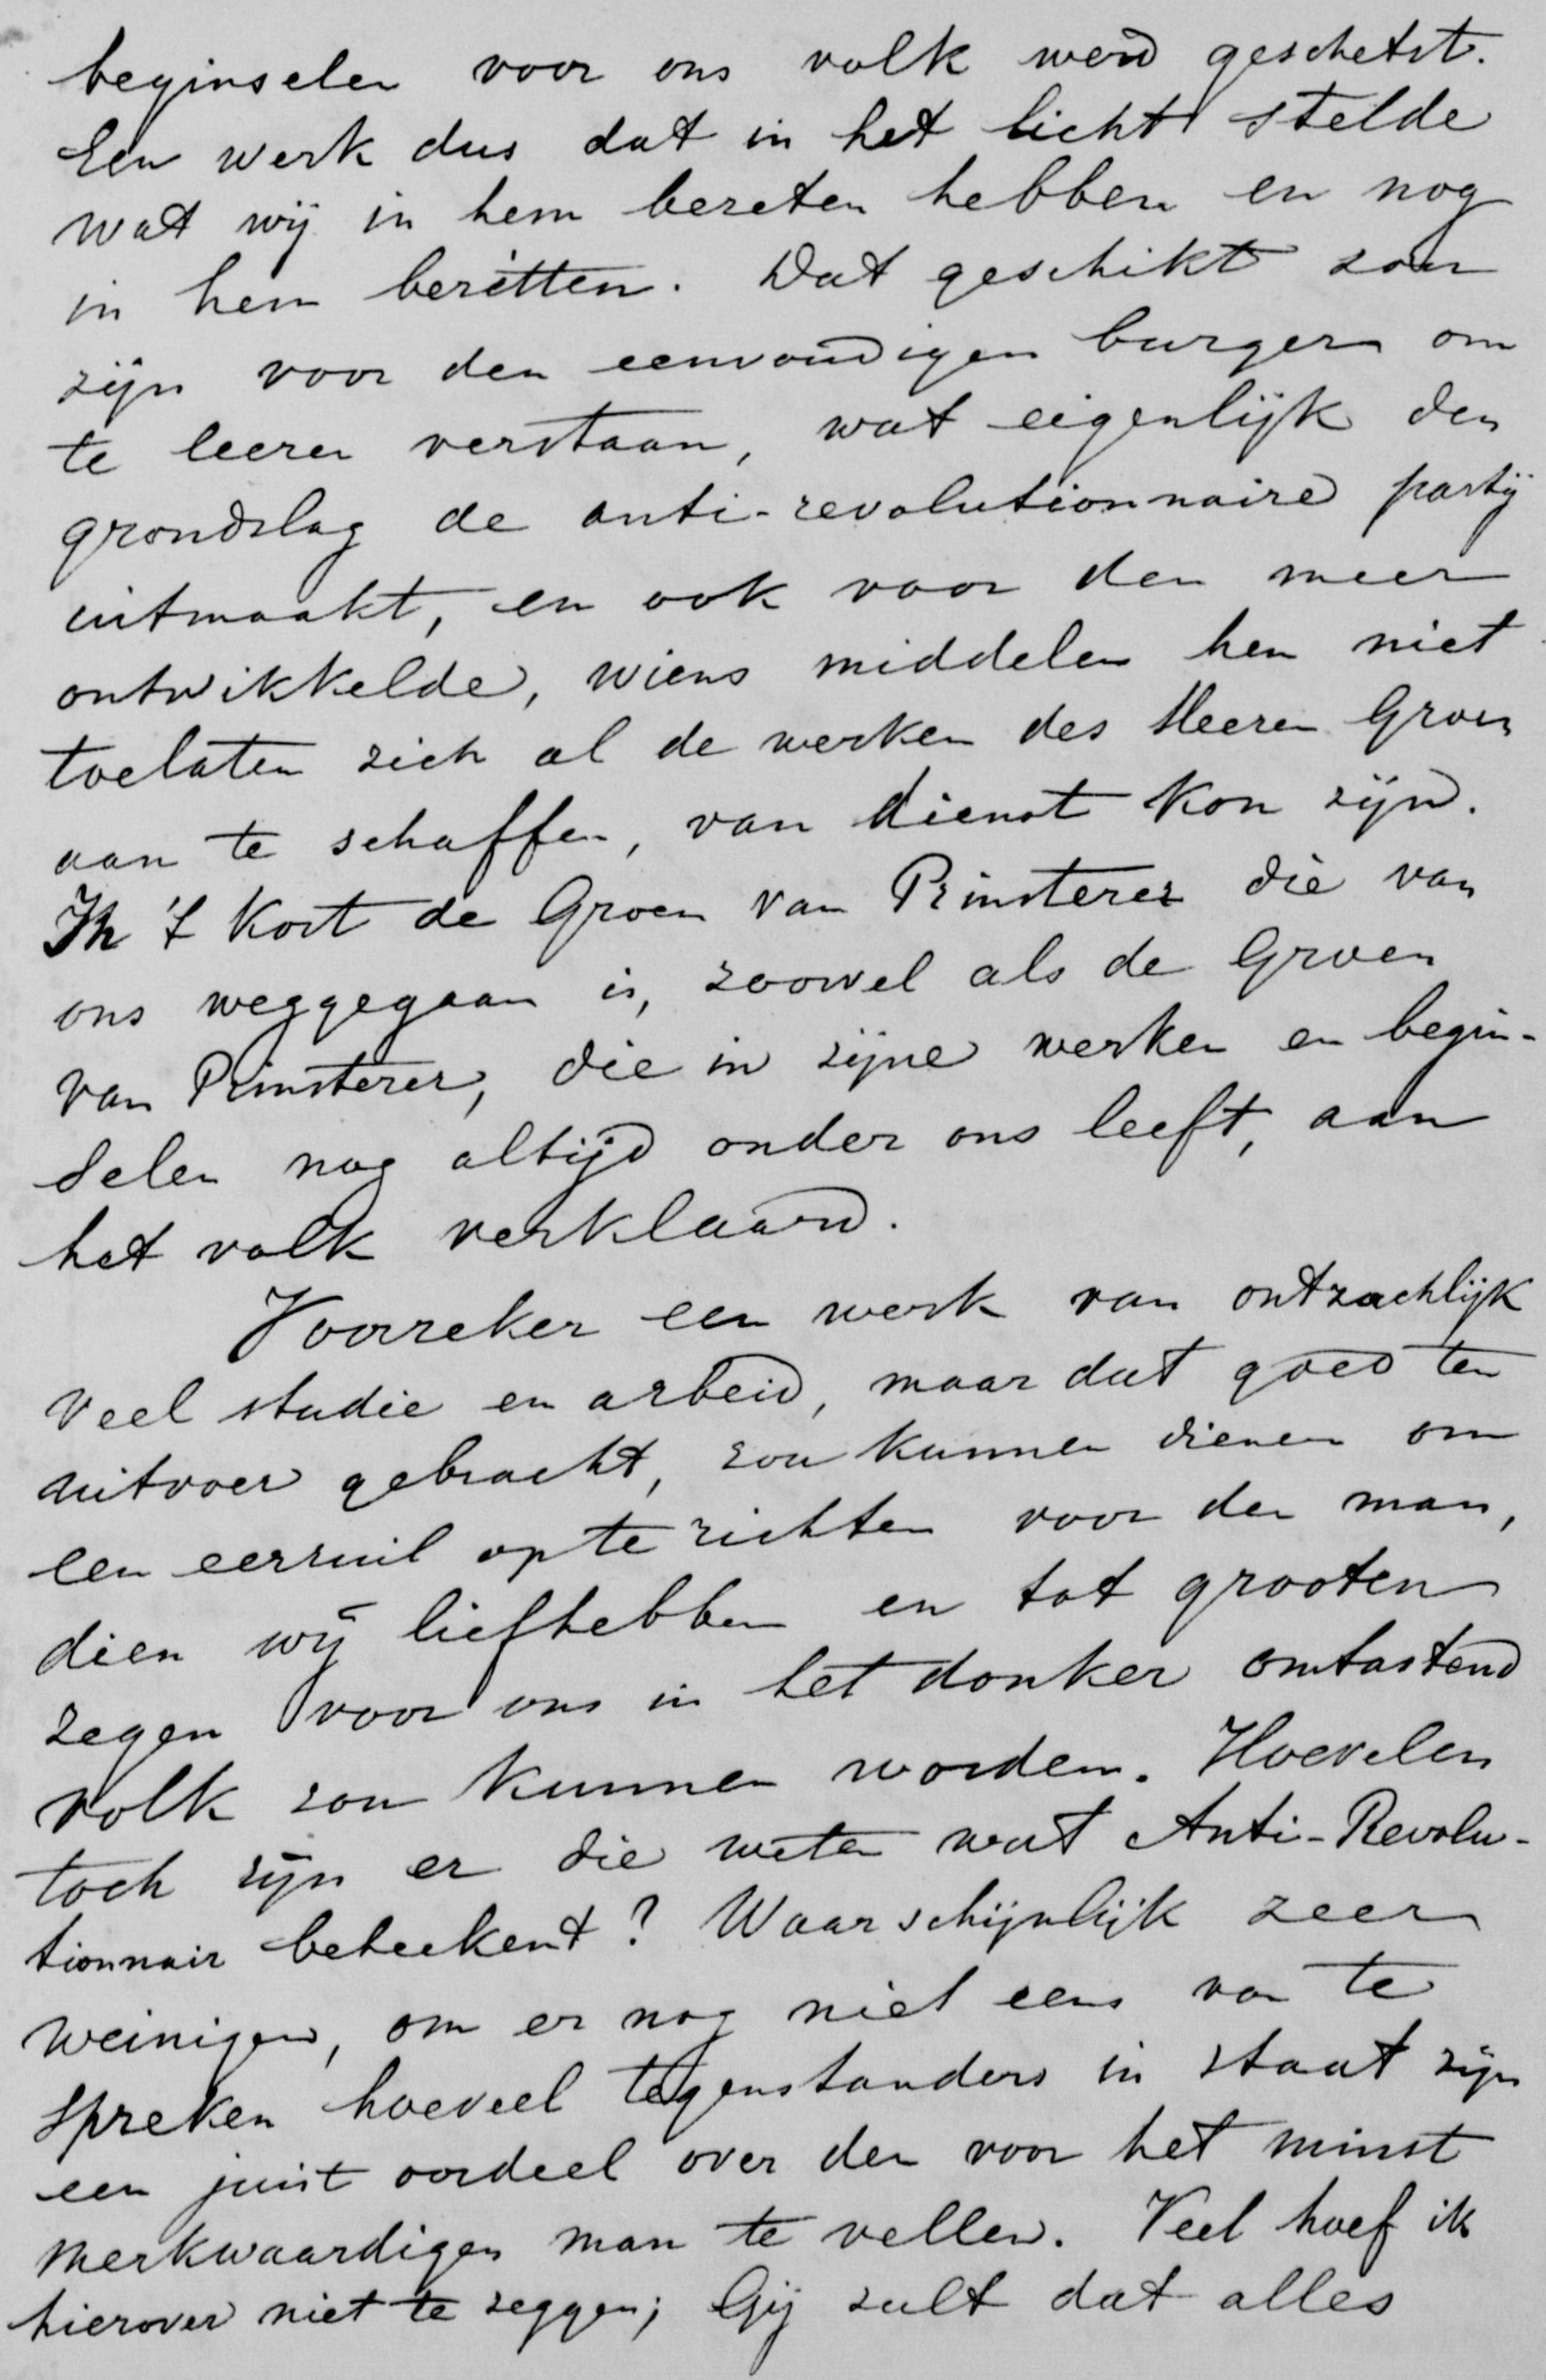 beginselen voor ons volk werd geschetst.
Een werk dus dat in het licht stelde
wat wij in hem bezeten hebben en nog
in hem bezitten. Dat geschikt zou
zijn voor den eenvoudigen burger om
te leeren verstaan, wat eigenlijk den
grondslag de anti-revolutionnaire partij
uitmaakt, en ook voor den meer
ontwikkelde, wiens middelen hem niet
toelaten zich al de werken des Heeren Groen
aan te schaffen, van dienst kon zijn.
In 't kort de Groen van Prinsterer die van
ons weggegaan is, zoowel als de Groen
van Prinsterer, die in zijne werken en begin-
selen nog altijd onder ons leeft, aan
het volk verklaard.
Voorzeker een werk van ontzachlijk
veel studie en arbeid, maar dat goed ten
uitvoer gebracht, zou kunnen dienen om
een eerzuil op te richten voor den man,
dien wij liefhebben en tot grooten
zegen voor ons in het donker omtastend
volk zou kunnen worden. Hoevelen
toch zijn er die weten wat Anti-Revolu-
tionnair beteekent? Waarschijnlijk zeer
weinigen, om er nog niet eens van te
spreken hoeveel tegenstanders in staat zijn
een juist oordeel over den voor het minst
merkwaardigen man te vellen. Veel hoef ik
hierover niet te zeggen; Gij zult dat alles